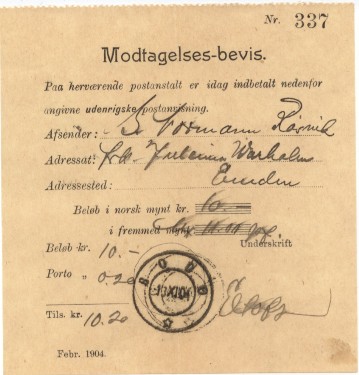 Nr. 337
Modtagelses-bevis.
Paa herværende postanstalt er idag indbetalt nedenfor
angivne udenrigske postanvisning.
Afsender:
Adressat: Warholm
Adressested: Emden
Beløb i norsk mynt kr. 10 -
i fremmed mynt
Underskrift
Beløb kr. 10.-
Porto „ 0.20
BODØ
Tils. kr. 10.20
Febr. 1904.